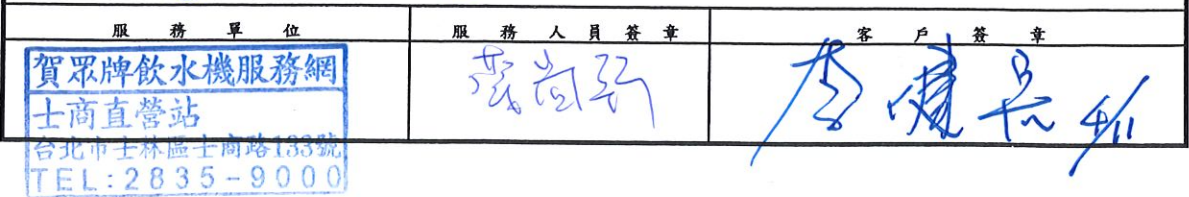 服務單位
服務人員簽章
客戶簽章
賀眾牌飲水機服務網
士商直營站
台北市士林區士商路133號
TEL:2835-9000
李
4/11